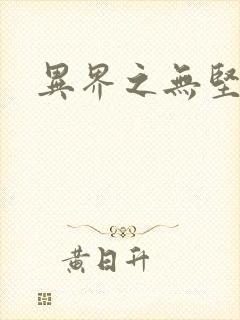 異界之無堅
黄日升